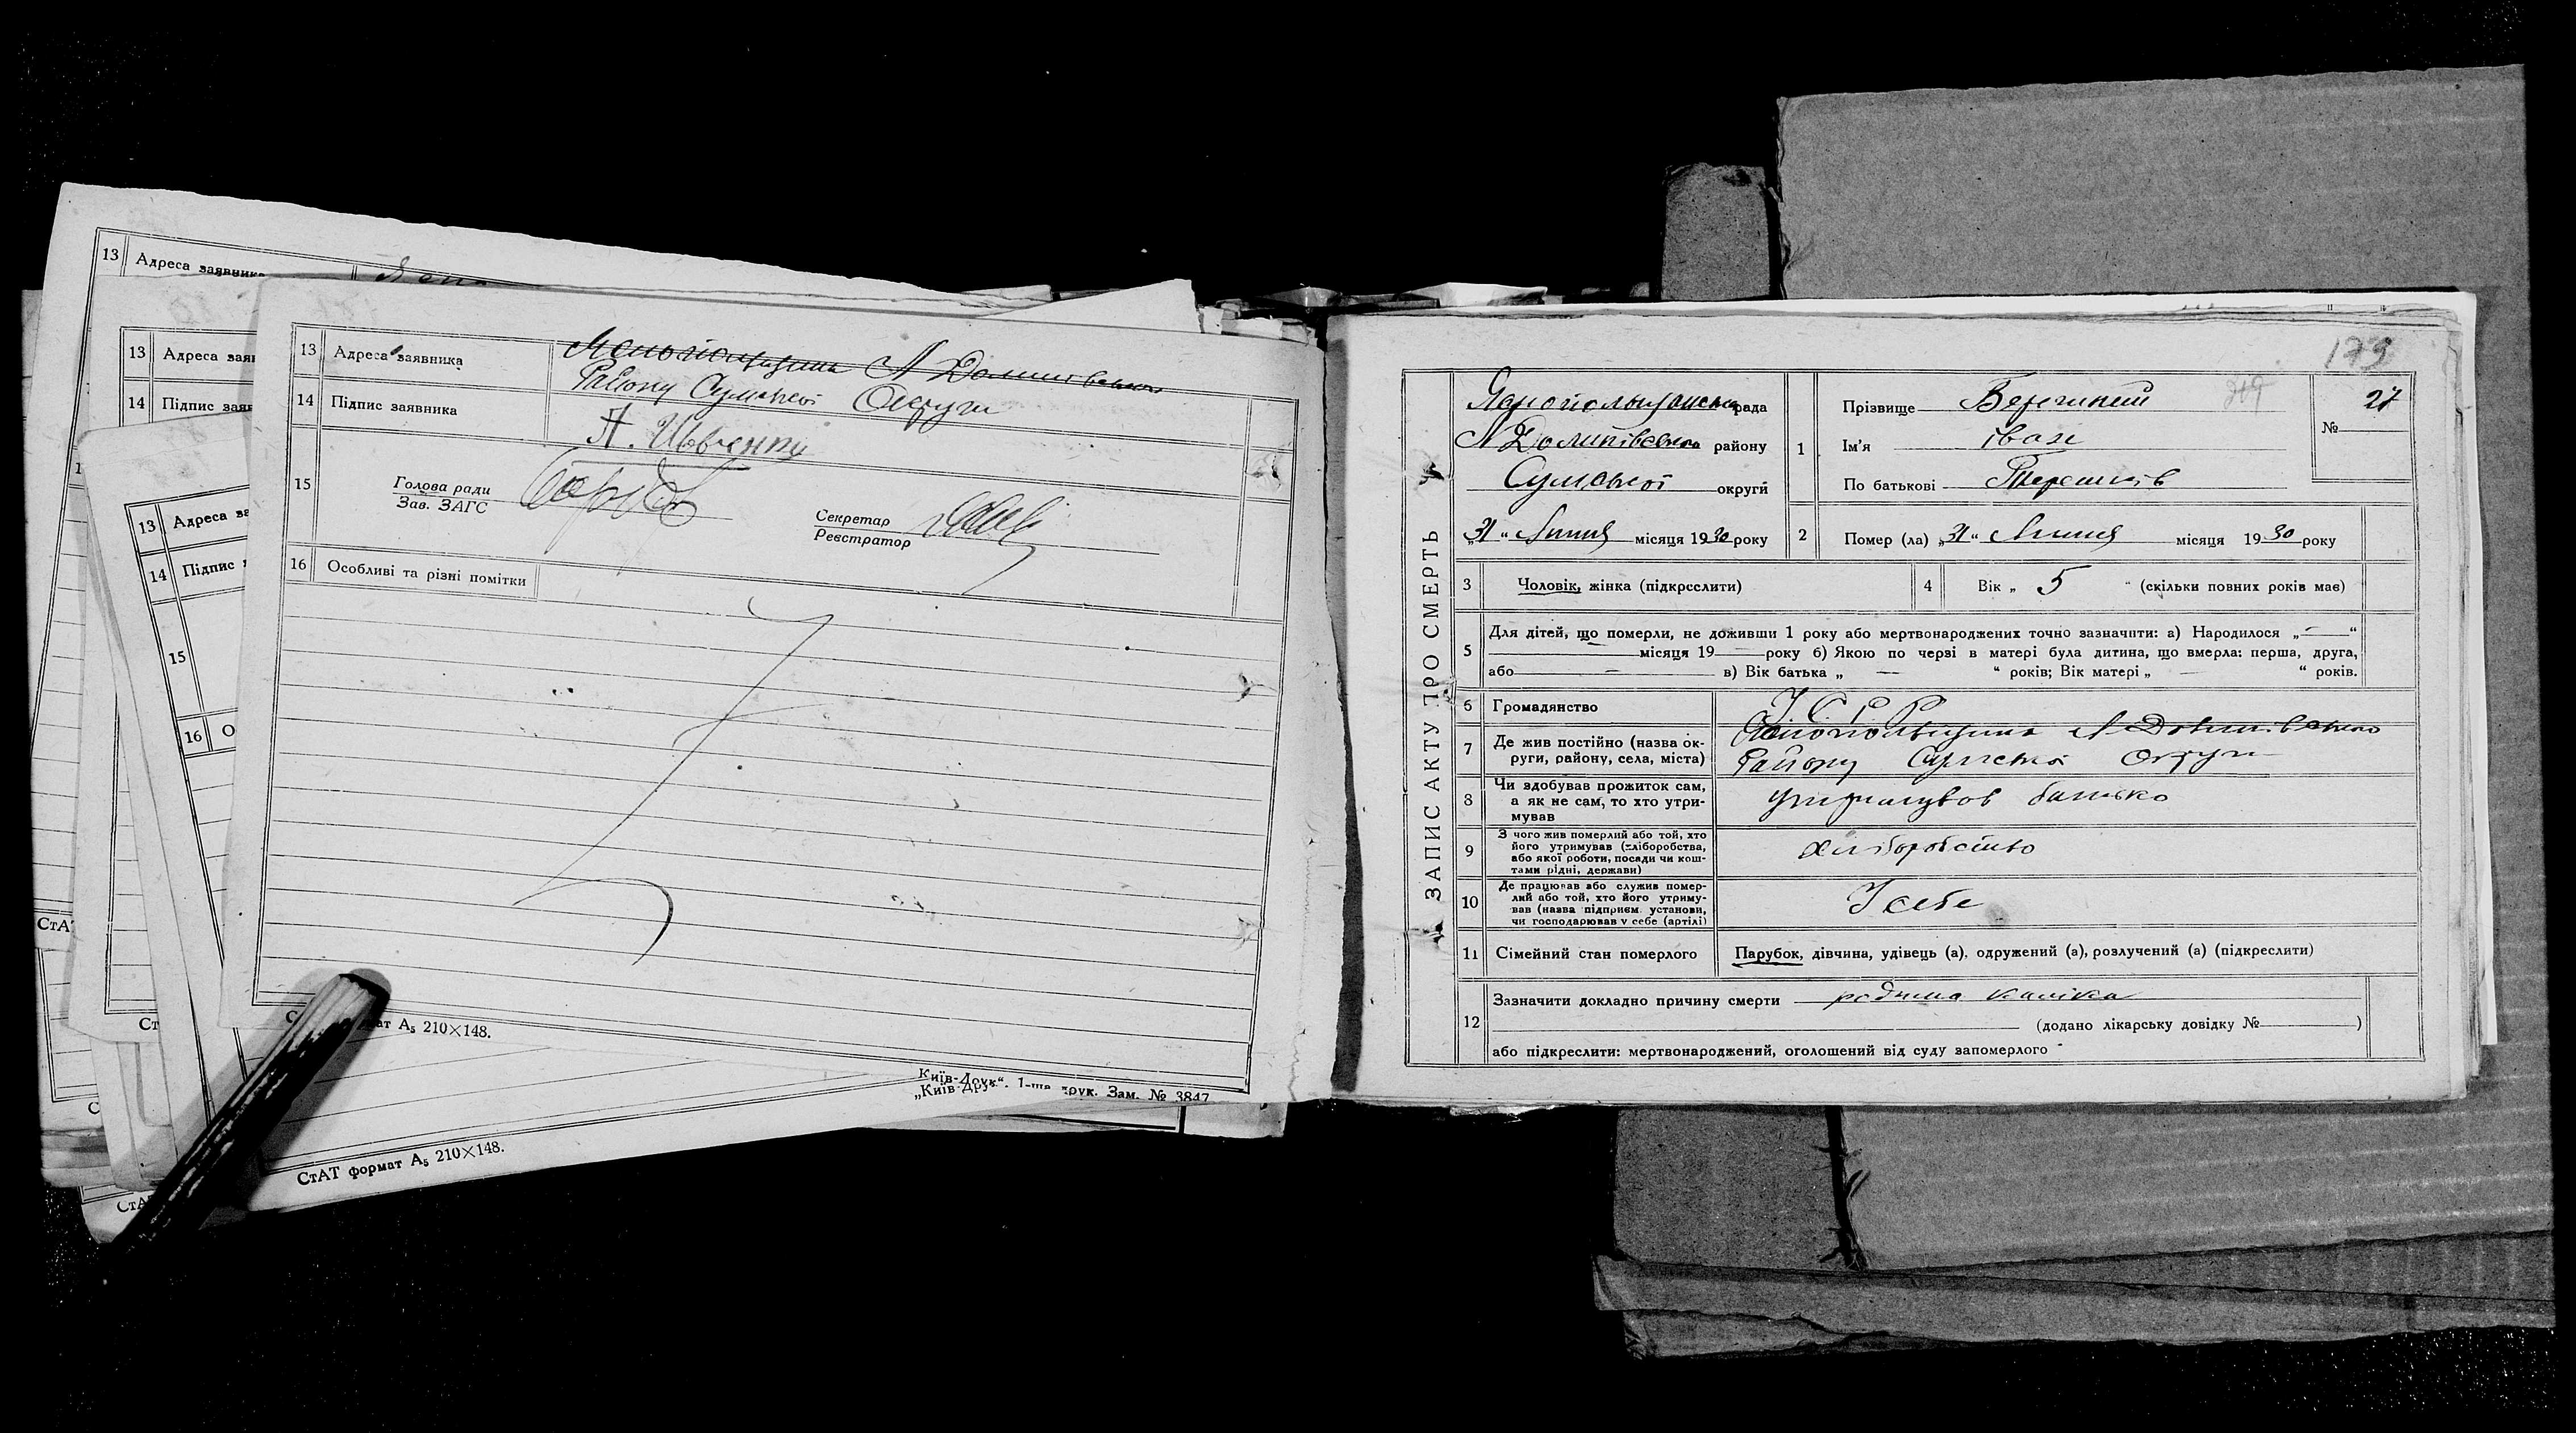 13 Адреса
13 Адреса
14 Підпис
13 Адреса
14 Підпис
15
16
13 Адреса заявника
Району Сумської Округи
14 Підпис заявника
А. Шевченко
15 Голова ради
Зав. ЗАГС
Секретар
Реєстратор
16 Особливі та різні помітки
А₅ 210×148.
„Київ-Друк“. 1-ша друк. Зам. № 3847
СтАТ формат А₅ 210×148.
ЗАПИС АКТУ ПРО СМЕРТЬ
179
рада
району
Сумської округи
„31“ Липня місяця 1930 року
1 Прізвище
Ім'я Іван
По батькові Терешків
№ 27
2 Помер (ла) „31“ Липня місяця 1930 року
3 Чоловік, жінка (підкреслити)
4 Вік „ 5 “ (скільки повних років має)
5 Для дітей, що померли, не доживши 1 року або мертвонароджених точно зазначити: а) Народилося „ — “
місяця 19 — року б) Якою по черзі в матері була дитина, що вмерла: перша, друга,
або — в) Вік батька „ — “ років; Вік матері „ — “ років.
6 Громадянство У. С. Р. Р.
7 Де жив постійно (назва ок-
руги, району, села, міста)
Району Сумської Округи
8 Чи здобував прожиток сам,
а як не сам, то хто утри-
мував
утримував батько
9 З чого жив померлий або той, хто
його утримував (хліборобства,
або якої роботи, посади чи кош-
тами рідні, держави)
хліборобство
10 Де працював або служив помер-
лий або той, хто його утриму-
вав (назва підприєм. установи,
чи господарював у себе (артілі)
У себе
11 Сімейний стан померлого Парубок, дівчина, удівець (а), одружений (а), розлучений (а) (підкреслити)
12 Зазначити докладно причину смерти родима каліка
(додано лікарську довідку № )
або підкреслити: мертвонароджений, оголошений від суду запомерлого